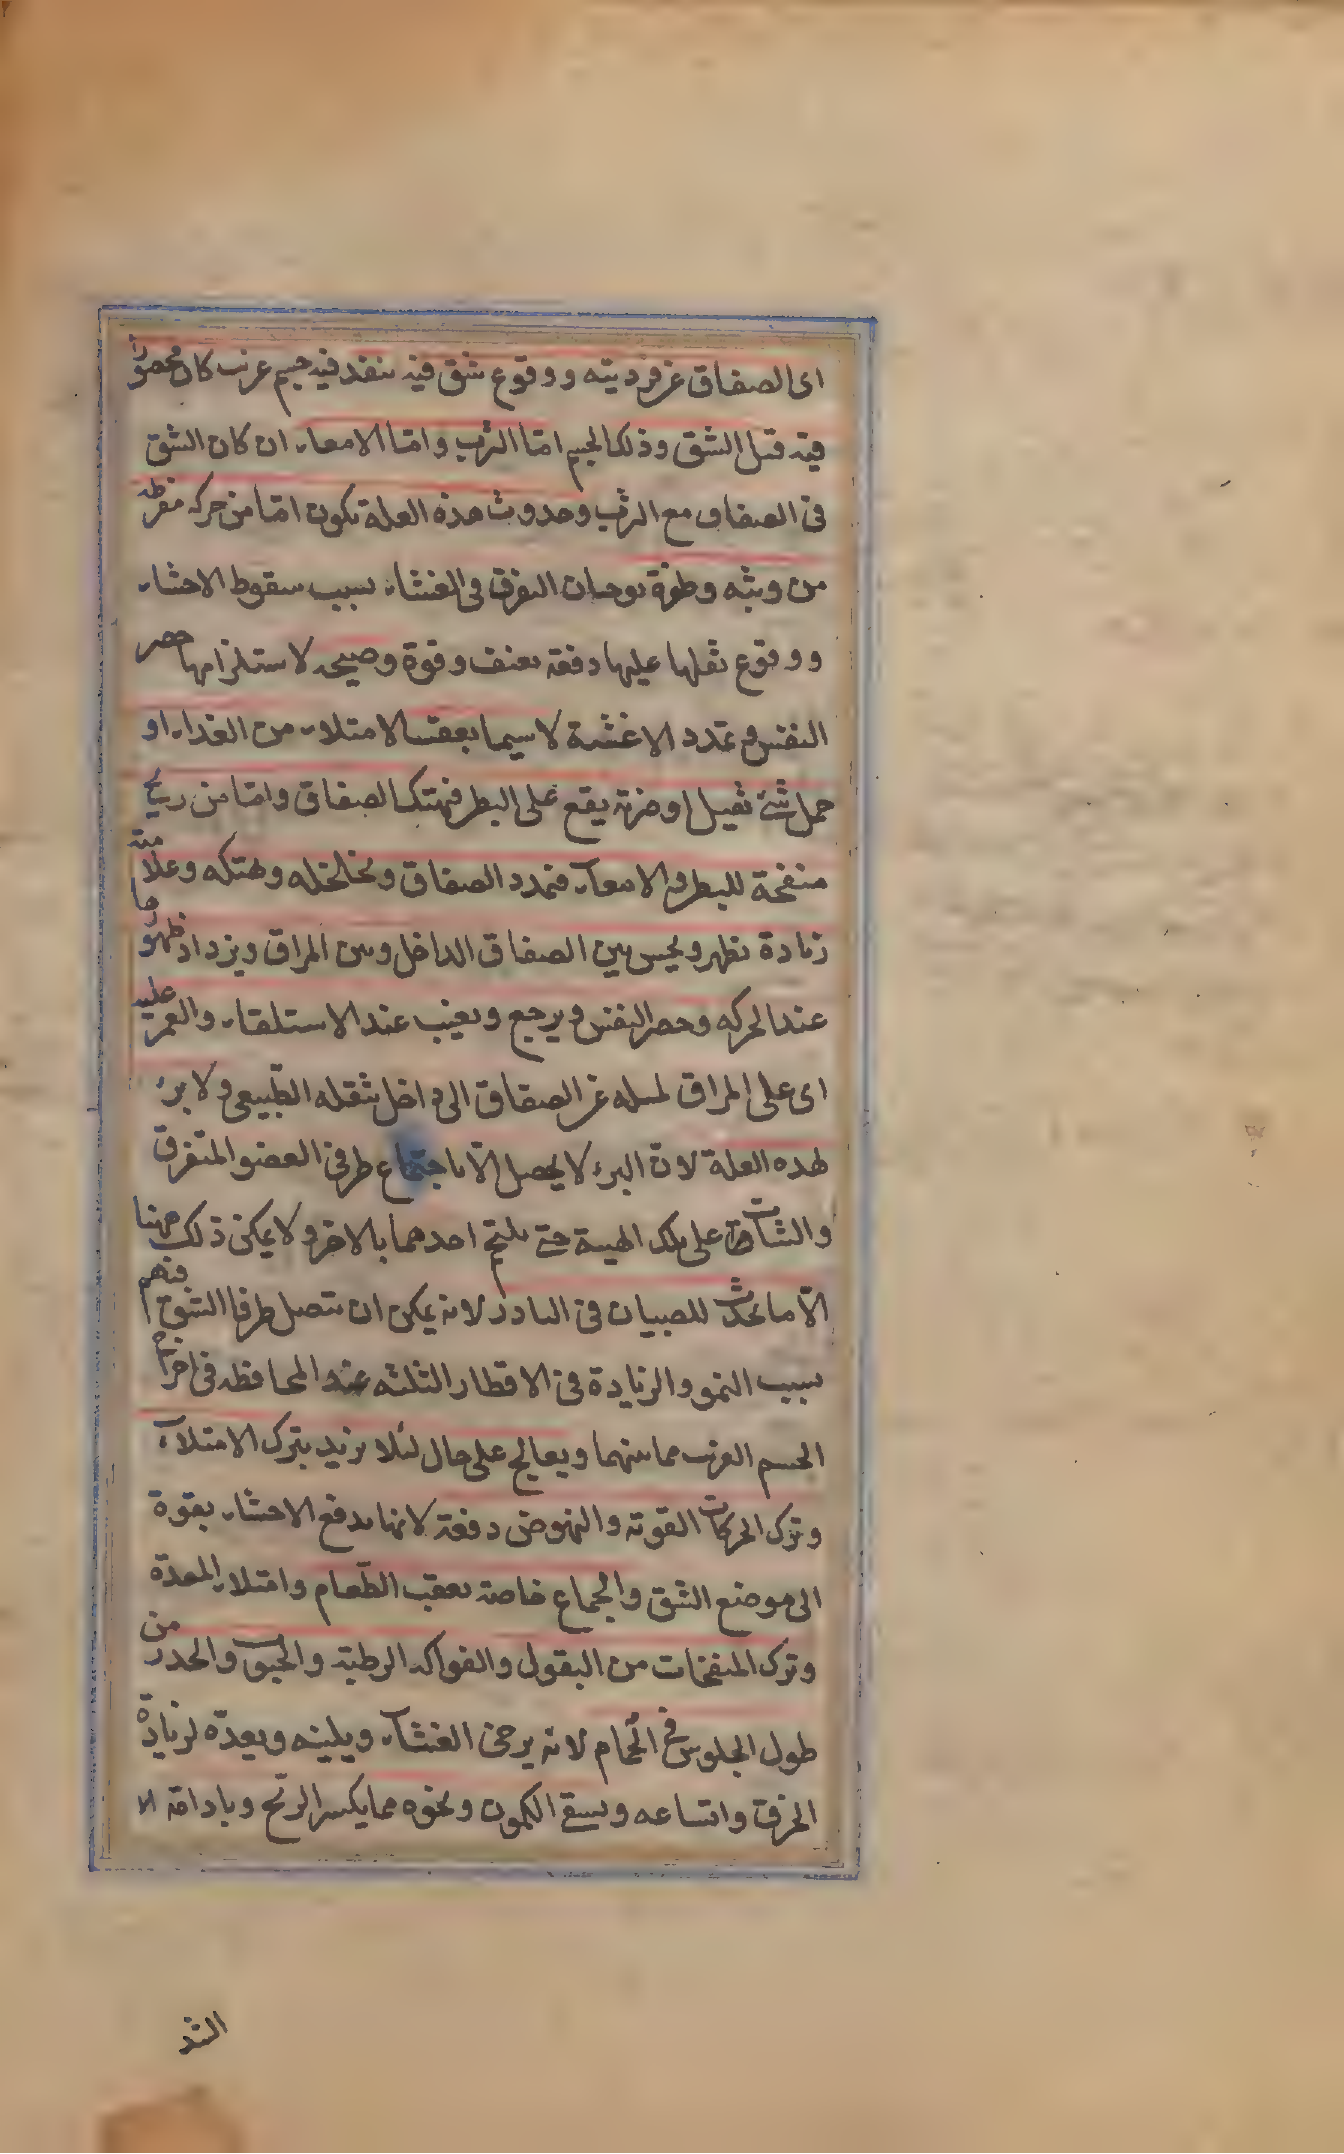 اى الصفاق عن فرديته ووقوع شق فيه ينفذ فيه جسم غريب كان محصورا
فيه قبل الشق وذلك الجسم امّا الثرب وامّا الامعاء ان كان الشق
فى الصفاق مع الثرب وحدوث هذه العلة تكون امّا من حركه مفرطه
من وثبه وطفرة يوجبان التفرق فى الغشاء بسبب سقوط الاحشاء
ووقوع ثقلها عليها دفعة بعنف وقوة وصيحه لاستلزامها حصر
النفس وتمدد الاغشية لا سيما بعقب الامتلاء من الغذاء او
حمل شئ ثقيل او ضربة يقع على البطن فيهتك الصفاق وامّا من ريح
منفخة للبطن والامعاء فتمدد الصفاق وتخلخله وتهتكه وعلامته
زيادة تظهر ويحس بين الصفاق الداخل وبين المراق ويزداد ظهورها
عند الحركه وحصر النفس ويرجع ويغيب عند الاستلقاء والغمز عليه
اى على المراق لميله عن الصفاق الى داخل بثقله الطّبيعى ولا برء
لهذه العلة لان البرء لا يحصل الّا باجتماع طرفى العضو المتفرق
والثبات على تلك الهيئة حتى يلتحم احدهما بالاخر ولا يمكن ذلك ههنا
الّا ما يحدث للصبيان فى النادر لانه يمكن ان يتصل طرفا الشق فيهم
بسبب النمو والزيادة فى الاقطار الثلثه عند المحافظه فى اخراج
الجسم الغريب مما بينهما ويعالج على حال لئلا يزيد بترك الامتلاء
وترك الحركات القوية والنهوض دفعة لانها يدفع الاحشاء بقوة
الى موضع الشق والجماع خاصة بعقب الطّعام وامتلاء المعدة
وترك المنفخات من البقول والفواكه الرطبة والحبوب والحذر من
طول الجلوس فى الحمام لانه يرخى الغشاء ويلينه ويعدّه لزيادة
الخرق واتساعه ويسقى الكمون ونحوه مما يكسر الريح وبادامة ال
الشد